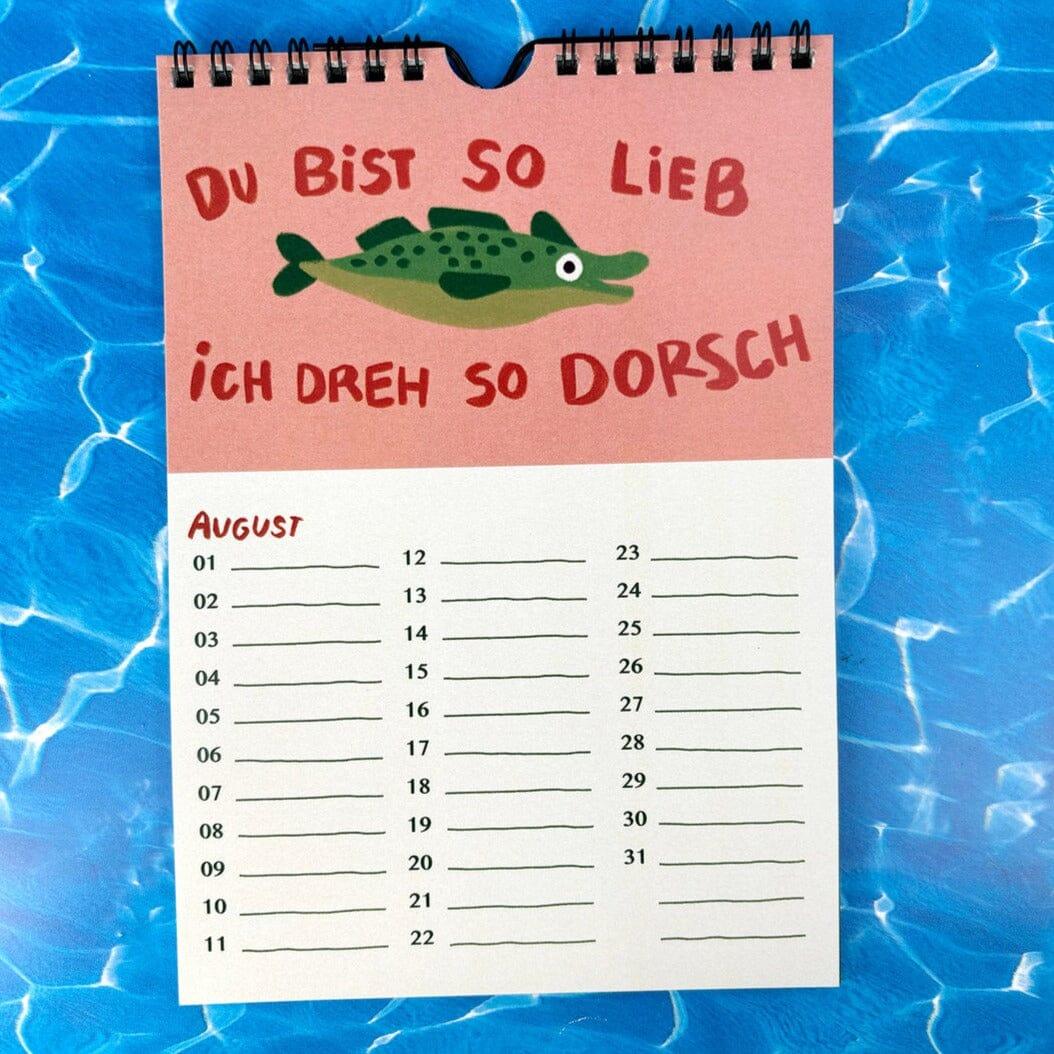 DU BiST SO LiEB
iCH DREH SO DORSCH
AUGUST
01
02
03
04
05
06
07
08
09
10
11
12
13
14
15
16
17
18
19
20
21
22
23
24
25
26
27
28
29
30
31